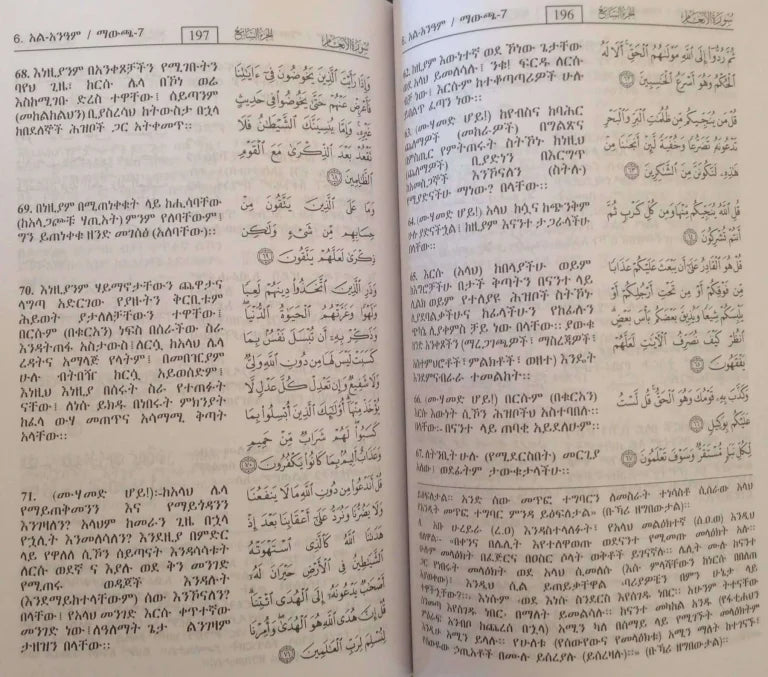 6. አል-አንዓም / ማውጫ-7
196
الجزء السابع
سورة الأنعام
62. ከዚያም እውነተኛ ወደ ኾነው ጌታቸው
ወደ አላህ ይመለሳሉ፤ ንቁ! ፍርዱ ለርሱ
ብቻ ነው፤ እርሱም ከተቆጣጣሪዎች ሁሉ
ይልቅ ፈጣን ነው።
63. (ሙሃመድ ሆይ!) ከየብስና ከባሕር
ጨለማዎች (መከራዎች) በግልጽና
በምስጢር የምትጠሩት ስትኾኑ ከነዚህ
(ጨለማዎች) ቢያድነን በእርግጥ
ከአመስጋኞች እንኾናለን (ስትሉ)
የሚያድናችሁ ማነው? በላቸው።
64. (ሙሃመድ ሆይ!) አላህ ከሷና ከጭንቅም
ሁሉ ያድናችኋል፤ ከዚያም እናንተ ታጋራላችሁ
በላቸው።
65. እርሱ (አላህ) ከበላያችሁ ወይም
ከእግሮቻችሁ በታች ቅጣትን በናንተ ላይ
ሊልክ ወይም የተለያዩ ሕዝቦች ስትኾኑ
ሊያደባልቃችሁና ከፊላችሁን የከፊሉን
ጭካኔ ሊያቀምስ ቻይ ነው በላቸው። ያውቁ
ዘንድ አንቀጾችን (ማረጋገጫዎች፣ ማስረጃዎች፣
አስተምህሮቶች፣ ምልክቶች፣ ወዘተ) እንዴት
እንደምናብራራ ተመልከት።
66. (ሙሃመድ ሆይ!) በርሱም (በቁርአን)
እርሱ እውነት ሲኾን ሕዝቦችህ አስተባበሉ።
በላቸው፡- በናንተ ላይ ጠባቂ አይደለሁም።
67. ለትንቢት ሁሉ (የሚደርስበት) መርጊያ
አለው፤ ወደፊትም ታውቁታላችሁ።
ثُمَّ رُدُّوا إِلَى اللَّهِ مَوْلَاهُمُ الْحَقِّ أَلَا لَهُ
الْحُكْمُ وَهُوَ أَسْرَعُ الْحَاسِبِينَ ٦٢
قُلْ مَن يُنَجِّيكُم مِّن ظُلُمَاتِ الْبَرِّ وَالْبَحْرِ
تَدْعُونَهُ تَضَرُّعًا وَخُفْيَةً لَّئِنْ أَنجَانَا مِنْ
هَٰذِهِ لَنَكُونَنَّ مِنَ الشَّاكِرِينَ ٦٣
قُلِ اللَّهُ يُنَجِّيكُم مِّنْهَا وَمِن كُلِّ كَرْبٍ ثُمَّ
أَنتُمْ تُشْرِكُونَ ٦٤
قُلْ هُوَ الْقَادِرُ عَلَىٰ أَن يَبْعَثَ عَلَيْكُمْ عَذَابًا
مِّن فَوْقِكُمْ أَوْ مِن تَحْتِ أَرْجُلِكُمْ أَوْ
يَلْبِسَكُمْ شِيَعًا وَيُذِيقَ بَعْضَكُم بَأْسَ بَعْضٍ
انظُرْ كَيْفَ نُصَرِّفُ الْآيَاتِ لَعَلَّهُمْ
يَفْقَهُونَ ٦٥
وَكَذَّبَ بِهِ قَوْمُكَ وَهُوَ الْحَقُّ قُل لَّسْتُ
عَلَيْكُم بِوَكِيلٍ ٦٦
لِّكُلِّ نَبَإٍ مُّسْتَقَرٌّ وَسَوْفَ تَعْلَمُونَ ٦٧
አንድ ሰው መጥፎ ተግባርን ለመስራት ተነሳስቶ ሲሰራው አላህ
መጥፎ ተግባር ምንዳ ይጽፍለታል» (ቡኻሪ ዘግበውታል)።
አቡ ሁረይራ (ረ.ዐ) እንዳስተላለፉት፣ የአላህ መልእክተኛ (ሰ.ዐ.ወ) እንዲህ
6. አል-አንዓም / ማውጫ-7
197
الجزء السابع
سورة الأنعام
68. እነዚያንም በአንቀጾቻችን የሚገቡትን
ባየህ ጊዜ፣ ከርሱ ሌላ በኾነ ወሬ
እስከሚገቡ ድረስ ተዋቸው፤ ሰይጣንም
(መከልከልህን) ቢያስረሳህ ከትውስታ በኋላ
ከበደለኞች ሕዝቦች ጋር አትቀመጥ።
69. በነዚያም በሚጠነቀቁት ላይ ከሒሳባቸው
(ከአላጋጮቹ ሃጢአት) ምንም የለባቸውም፤
ግን ይጠነቀቁ ዘንድ መገሰፅ (አለባቸው)።
70. እነዚያንም ሃይማኖታቸውን ጨዋታና
ላግጣ አድርገው የያዙትን ቅርቢቱም
ሕይወት ያታለለቻቸውን ተዋቸው፤
በርሱም (በቁርአን) ነፍስ በሰራችው ስራ
እንዳትጠፋ አስታውስ፤ ለርሷ ከአላህ ሌላ
ረዳትና አማላጅ የላትም፤ በመበዠያም
ሁሉ ብትበዥ ከርሷ አይወሰድም፤
እነዚህ እነዚያ በሰሩት ስራ የተጠፉት
ናቸው፤ ለነሱ ይክዱ በነበሩት ምክንያት
ከፈላ ውሃ መጠጥና አሳማሚ ቅጣት
አላቸው።
71. (ሙሃመድ ሆይ!)፡-ከአላህ ሌላ
የማይጠቅመንን እና የማይጎዳንን
እንገዛለን? አላህም ከመራን ጊዜ በኋላ
የኋሊት እንመለሳለን? እንደዚያ በምድር
ላይ የዋለለ ሲኾን ሰይጣናት እንዳሳሳቱት
ለርሱ ወደኛ ና እያሉ ወደ ቅን መንገድ
የሚጠሩ ወዳጆች እንዳሉት
(እንደማይከተላቸውም) ሰው እንኾናለን?
በላቸው፤ የአላህ መንገድ እርሱ ቀጥተኛው
መንገድ ነው፤ ለዓለማት ጌታ ልንገዛም
ታዘዝን በላቸው።
وَإِذَا رَأَيْتَ الَّذِينَ يَخُوضُونَ فِي آيَاتِنَا
فَأَعْرِضْ عَنْهُمْ حَتَّىٰ يَخُوضُوا فِي حَدِيثٍ
غَيْرِهِ وَإِمَّا يُنسِيَنَّكَ الشَّيْطَانُ فَلَا
تَقْعُدْ بَعْدَ الذِّكْرَىٰ مَعَ الْقَوْمِ
الظَّالِمِينَ ٦٨
وَمَا عَلَى الَّذِينَ يَتَّقُونَ مِنْ
حِسَابِهِم مِّن شَيْءٍ وَلَٰكِن
ذِكْرَىٰ لَعَلَّهُمْ يَتَّقُونَ ٦٩
وَذَرِ الَّذِينَ اتَّخَذُوا دِينَهُمْ لَعِبًا
وَلَهْوًا وَغَرَّتْهُمُ الْحَيَاةُ الدُّنْيَا
وَذَكِّرْ بِهِ أَن تُبْسَلَ نَفْسٌ بِمَا
كَسَبَتْ لَيْسَ لَهَا مِن دُونِ اللَّهِ وَلِيٌّ
وَلَا شَفِيعٌ وَإِن تَعْدِلْ كُلَّ عَدْلٍ لَّا
يُؤْخَذْ مِنْهَا أُولَٰئِكَ الَّذِينَ أُبْسِلُوا بِمَا
كَسَبُوا لَهُمْ شَرَابٌ مِّنْ حَمِيمٍ
وَعَذَابٌ أَلِيمٌ بِمَا كَانُوا يَكْفُرُونَ ٧٠
قُلْ أَنَدْعُو مِن دُونِ اللَّهِ مَا لَا يَنفَعُنَا
وَلَا يَضُرُّنَا وَنُرَدُّ عَلَىٰ أَعْقَابِنَا بَعْدَ إِذْ
هَدَانَا اللَّهُ كَالَّذِي اسْتَهْوَتْهُ
الشَّيَاطِينُ فِي الْأَرْضِ حَيْرَانَ لَهُ
أَصْحَابٌ يَدْعُونَهُ إِلَى الْهُدَى ائْتِنَا
قُلْ إِنَّ هُدَى اللَّهِ هُوَ الْهُدَىٰ وَأُمِرْنَا
لِنُسْلِمَ لِرَبِّ الْعَالَمِينَ ٧١